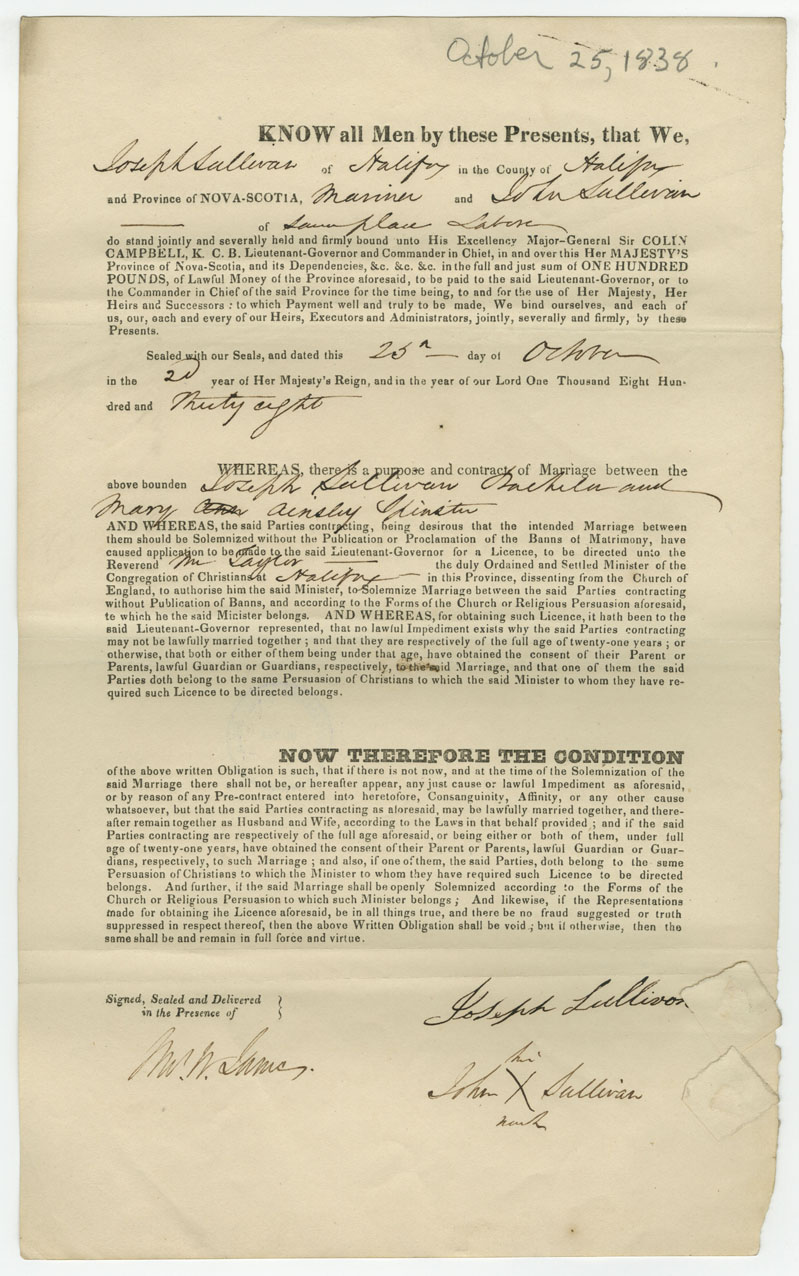 October 25, 1838.
KNOW all Men by these Presents, that We,
Joseph Sullivan of Halifax in the County of Halifax
and Province of NOVA-SCOTIA, Mariner and John Sullivan
of same place Laborer
do stand jointly and severally held and firmly bound unto His Excellency Major-General Sir COLIN
CAMPBELL, K. C. B. Lieutenant-Governor and Commander in Chief, in and over this Her MAJESTY'S
Province of Nova-Scotia, and its Dependencies, &c. &c. &c. in the full and just sum of ONE HUNDRED
POUNDS, of Lawful Money of the Province aforesaid, to be paid to the said Lieutenant-Governor, or to
the Commander in Chief of the said Province for the time being, to and for the use of Her Majesty, Her
Heirs and Successors : to which Payment well and truly to be made, We bind ourselves, and each of
us, our, each and every of our Heirs, Executors and Administrators, jointly, severally and firmly, by these
Presents.
Sealed with our Seals, and dated this 25th day of October
in the 2d year of Her Majesty's Reign, and in the year of our Lord One Thousand Eight Hun-
dred and Thirty eight
WHEREAS, there is a purpose and contract of Marriage between the
above bounden Joseph Sullivan Bachelor and
Mary Ann Ainsley Spinster
AND WHEREAS, the said Parties contracting, being desirous that the intended Marriage between
them should be Solemnized without the Publication or Proclamation of the Banns of Matrimony, have
caused application to be made to the said Lieutenant-Governor for a Licence, to be directed unto the
Reverend Mr Taylor the duly Ordained and Settled Minister of the
Congregation of Christians at Halifax in this Province, dissenting from the Church of
England, to authorise him the said Minister, to Solemnize Marriage between the said Parties contracting
without Publication of Banns, and according to the Forms of the Church or Religious Persuasion aforesaid,
to which he the said Minister belongs. AND WHEREAS, for obtaining such Licence, it hath been to the
said Lieutenant-Governor represented, that no lawful Impediment exists why the said Parties contracting
may not be lawfully married together ; and that they are respectively of the full age of twenty-one years ; or
otherwise, that both or either of them being under that age, have obtained the consent of their Parent or
Parents, lawful Guardian or Guardians, respectively, to the said Marriage, and that one of them the said
Parties doth belong to the same Persuasion of Christians to which the said Minister to whom they have re-
quired such Licence to be directed belongs.
NOW THEREFORE THE CONDITION
of the above written Obligation is such, that if there is not now, and at the time of the Solemnization of the
said Marriage there shall not be, or hereafter appear, any just cause or lawful Impediment as aforesaid,
or by reason of any Pre-contract entered into heretofore, Consanguinity, Affinity, or any other cause
whatsoever, but that the said Parties contracting as aforesaid, may be lawfully married together, and there-
after remain together as Husband and Wife, according to the Laws in that behalf provided ; and if the said
Parties contracting are respectively of the full age aforesaid, or being either or both of them, under full
age of twenty-one years, have obtained the consent of their Parent or Parents, lawful Guardian or Guar-
dians, respectively, to such Marriage ; and also, if one of them, the said Parties, doth belong to the same
Persuasion of Christians to which the Minister to whom they have required such Licence to be directed
belongs. And further, if the said Marriage shall be openly Solemnized according to the Forms of the
Church or Religious Persuasion to which such Minister belongs ; And likewise, if the Representations
made for obtaining the Licence aforesaid, be in all things true, and there be no fraud suggested or truth
suppressed in respect thereof, then the above Written Obligation shall be void ; but if otherwise, then the
same shall be and remain in full force and virtue.
Signed, Sealed and Delivered
in the Presence of
Joseph Sullivan
W. James.
his
John X Sullivan
mark